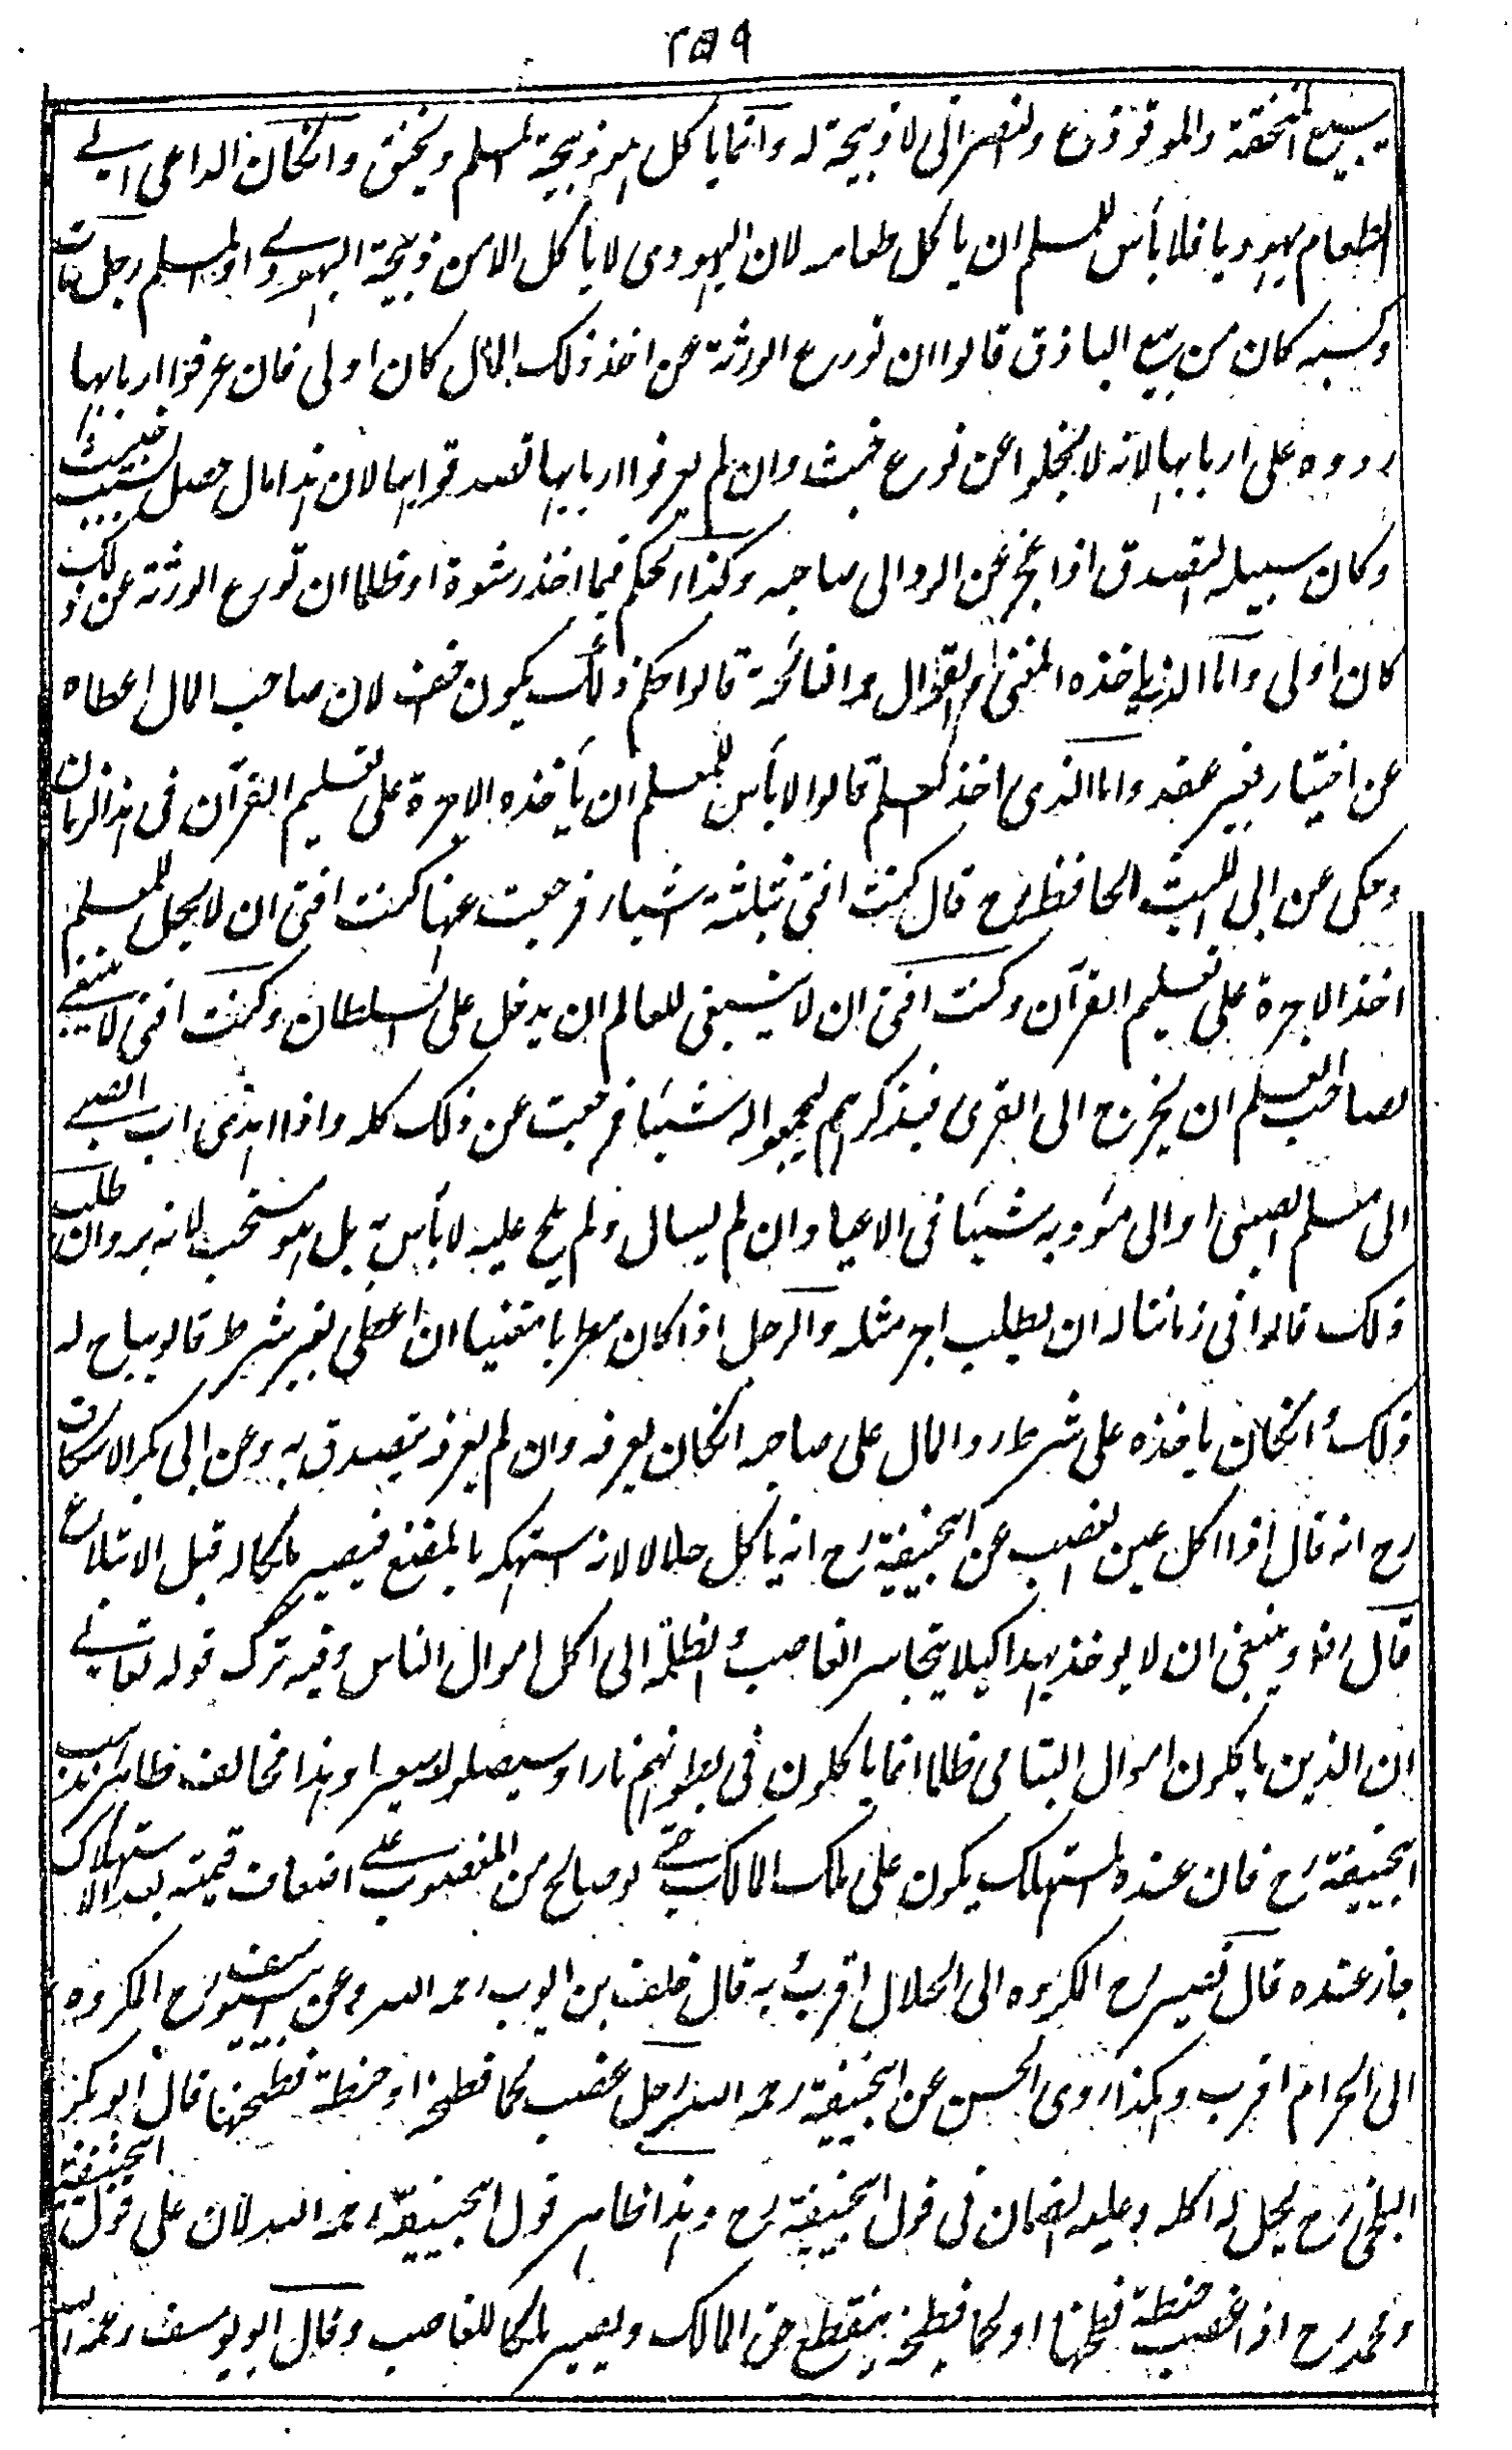 ٣٥٩
يبيع المنخنقة والموقوذة والنصراني لا ذبيحة له وانما ياكل هو ذبيحة المسلم ويخنق وان كان الداعي الى
الطعام يهوديا فلا بأس للمسلم ان ياكل طعامه لان اليهودى لا يأكل الا من ذبيحة اليهودى او المسلم رجل مات
وكسبه كان من بيع الباذق قالوا ان تورع الورثة عن اخذ ذلك المال كان اولى فان عرفوا اربابها
ردوه على اربابها لانه لا يخلوا عن نوع خبث وان لم يعرفوا اربابها تصدقوا بها لان هذا مال حصل بسبب خبيث
وكان سبيله التصدق اذا عجز عن الرد الى صاحبه وكذا الحكم فيما اخذ رشوة او ظلما ان تورع الورثة عن ذلك
كان اولى واما الذى ياخذه المغنى والقوال والنائحة قالوا حكم ذلك يكون اخف لان صاحب المال اعطاه
عن اختيار بغير عقد واما الذى اخذ المعلم قالوا لا بأس للمعلم ان يأخذه الاجرة على تعليم القرآن فى هذا الزمان
وحكى عن ابى الليث الحافظ رح قال كنت افتى بثلثة اشياء فرجعت عنها كنت افتى ان لا يحل للمعلم
اخذ الاجرة على تعليم القرآن وكنت افتى ان لا ينبغى للعالم ان يدخل على السلطان وكنت افتى لا ينبغى
لصاحب العلم ان يخرج الى القرى فيذكرهم ليجمعوا له شيئا فرجعت عن ذلك كله واذا اهدى اب الصبى
الى معلم الصبى او الى مؤدبه شيئا فى الاعياد ان لم يسال ولم يلح عليه لا بأس به بل هو مستحب لانه بر وان طلب
ذلك قالوا فى زماننا له ان يطلب اجر مثله والرجل اذا كان مطربا مغنيا ان اعطى بغير شرط قالو يباح له
ذلك وان كان ياخذه على شرط رد المال على صاحبه ان كان يعرفه وان لم يعرفه يتصدق به وعن ابى بكر الاسكاف
رح انه قال اذا اكل عين الغصب عن ابيحنيفة رح انه ياكل حلالا لانه استهلكه بالمضغ فيصير ملكا له قبل الابتلاع
قال رض وينبغى ان لا يوخذ بهذا كيلا يتجاسر الغاصب والظلمة الى اكل اموال الناس وفيه ترك قوله تعالى
ان الذين ياكلون اموال اليتامى ظلما انما ياكلون فى بطونهم نارا وسيصلون سعيرا وهذا مخالف ظاهر مذهب
ابيحنيفة رح فان عنده المستهلك يكون على ملك المالك حتى لو صالح من المغصوب على اضعاف قيمته بعد الاستهلاك
جاز عنده قال نصير رح المكروه الى الحلال اقرب وبه قال خلف بن ايوب رحمه الله وعن ابى يوسف رح المكروه
الى الحرام اقرب وهكذا روى الحسن عن ابيحنيفة رحمه الله رجل غصب لحما فطبخه او حنطة فطحنها قال ابو بكر
البلخى رح يحل له اكله وعليه الضمان فى قول ابيحنيفة رح وهذا ظاهر قول ابيحنيفة رحمه الله لان على قول ابيحنيفة
ومحمد رح اذا غصب حنطة فطحنها او لحما فطبخه ينقطع حق المالك ويصير ملكا للغاصب وقال ابو يوسف رحمه الله